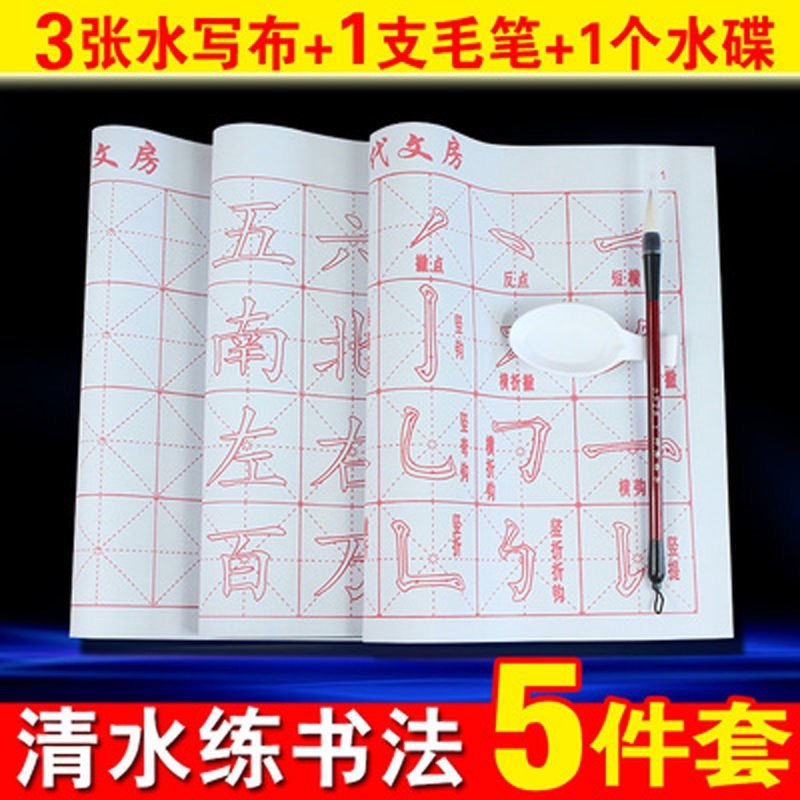 3张水写布+1支毛笔+1个水碟
文房
代文房
1
五 六
南 北
左 右
百 万
撇点
反点
短横
竖钩
横折撇
撇
竖弯钩
横折钩
横钩
竖折
竖折折钩
竖提
清水练书法
5件套